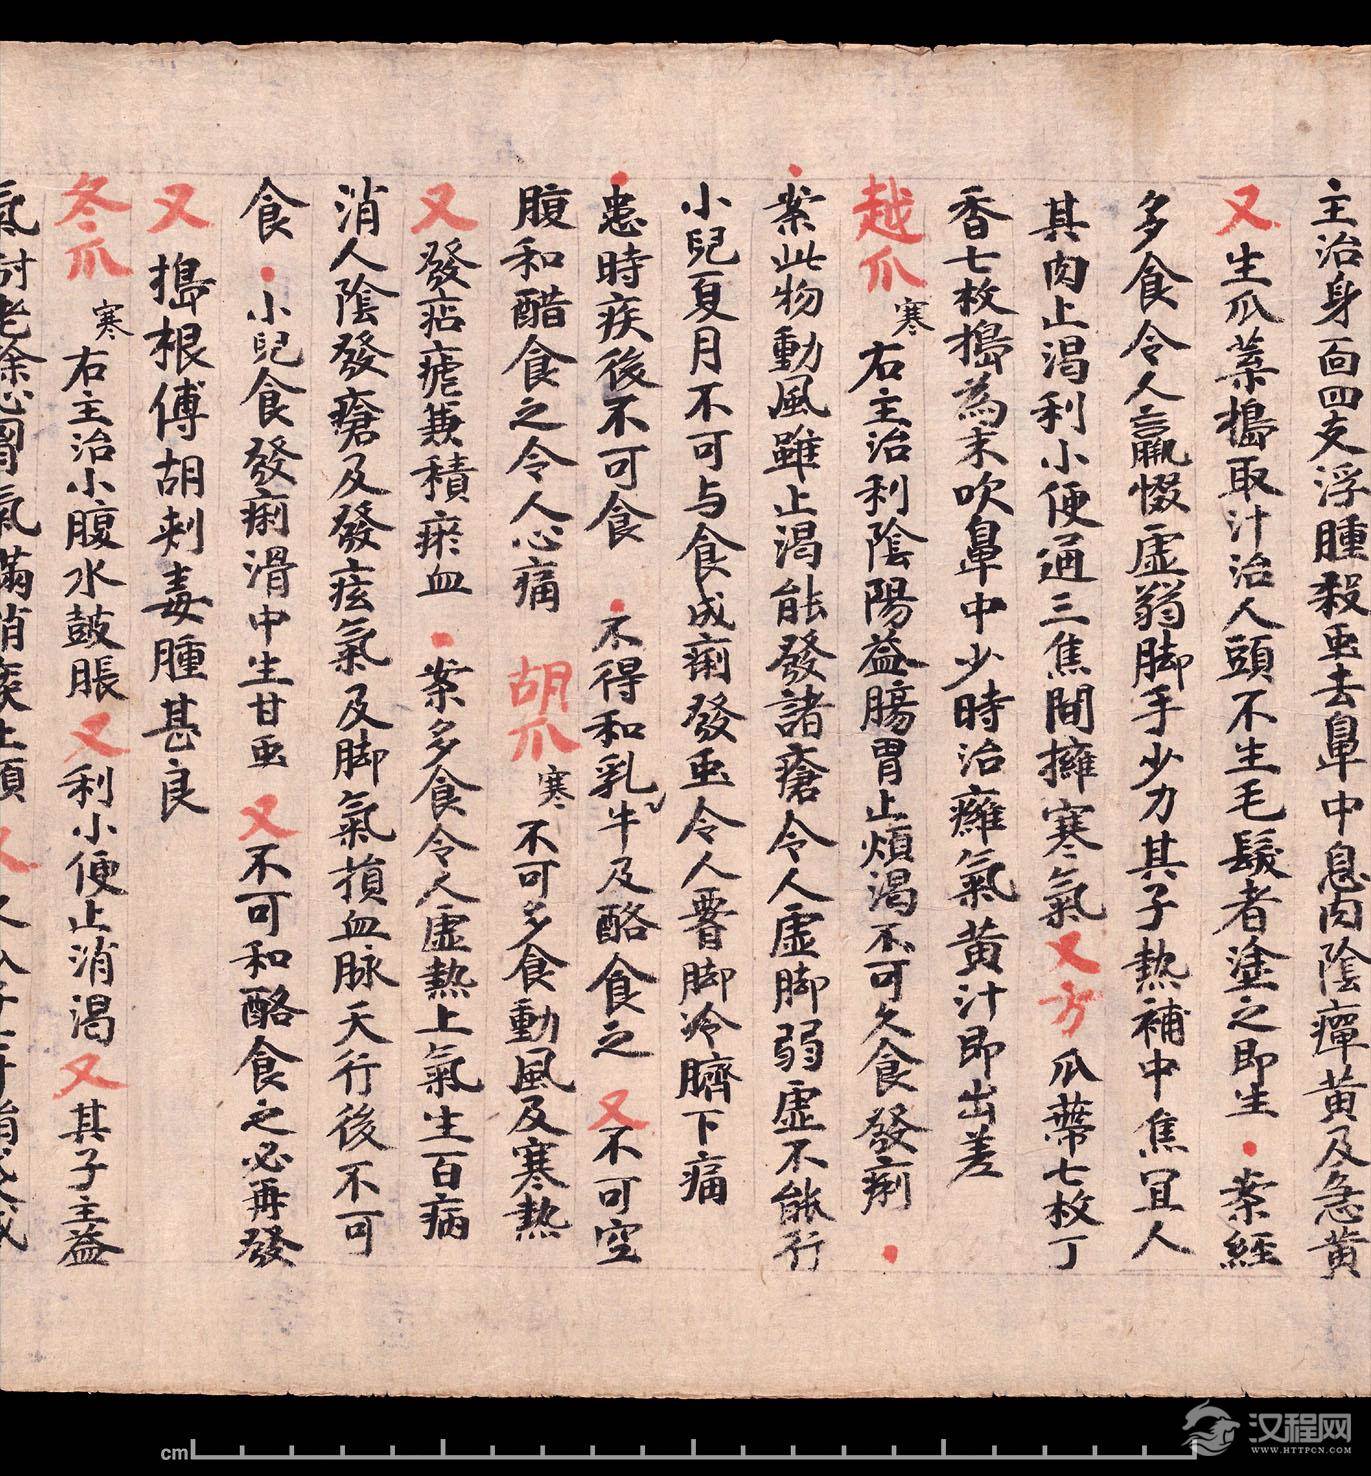 主治身面四支浮腫殺虫去鼻中息肉陰癉黄及急黄
又生瓜葉搗取汁治人頭不生毛髮者塗之即生·案經
多食令人羸惙虚弱脚手少力其子熱補中焦冝人
其肉止渴利小便通三焦間擁寒氣又方瓜蔕七枚丁
香七枚搗為末吹鼻中少時治癰氣黄汁即出差
越瓜寒右主治利陰陽益腸胃止煩渴不可久食發痢·
·案此物動風雖止渴能發諸瘡令人虚脚弱虚不能行
小兒夏月不可与食成痢發虫令人脚冷臍下痛
·患時疾後不可食·不得和乳牛及酪食之又不可空
腹和醋食之令人心痛胡瓜寒不可多食動風及寒熱
又發痁瘧兼積瘀血·案多食令人虚熱上氣生百病
消人陰發瘡及發痃氣及脚氣損血脉天行後不可
食·小兒食發痢滑中生甘虫又不可和酪食之必再發
又搗根傅胡刺毒腫甚良
冬瓜寒右主治小腹水鼓脹又利小便止消渴又其子主益
氣耐老除心胷氣滿消痰止煩又
cm
汉程网
WWW.HTTPCN.COM